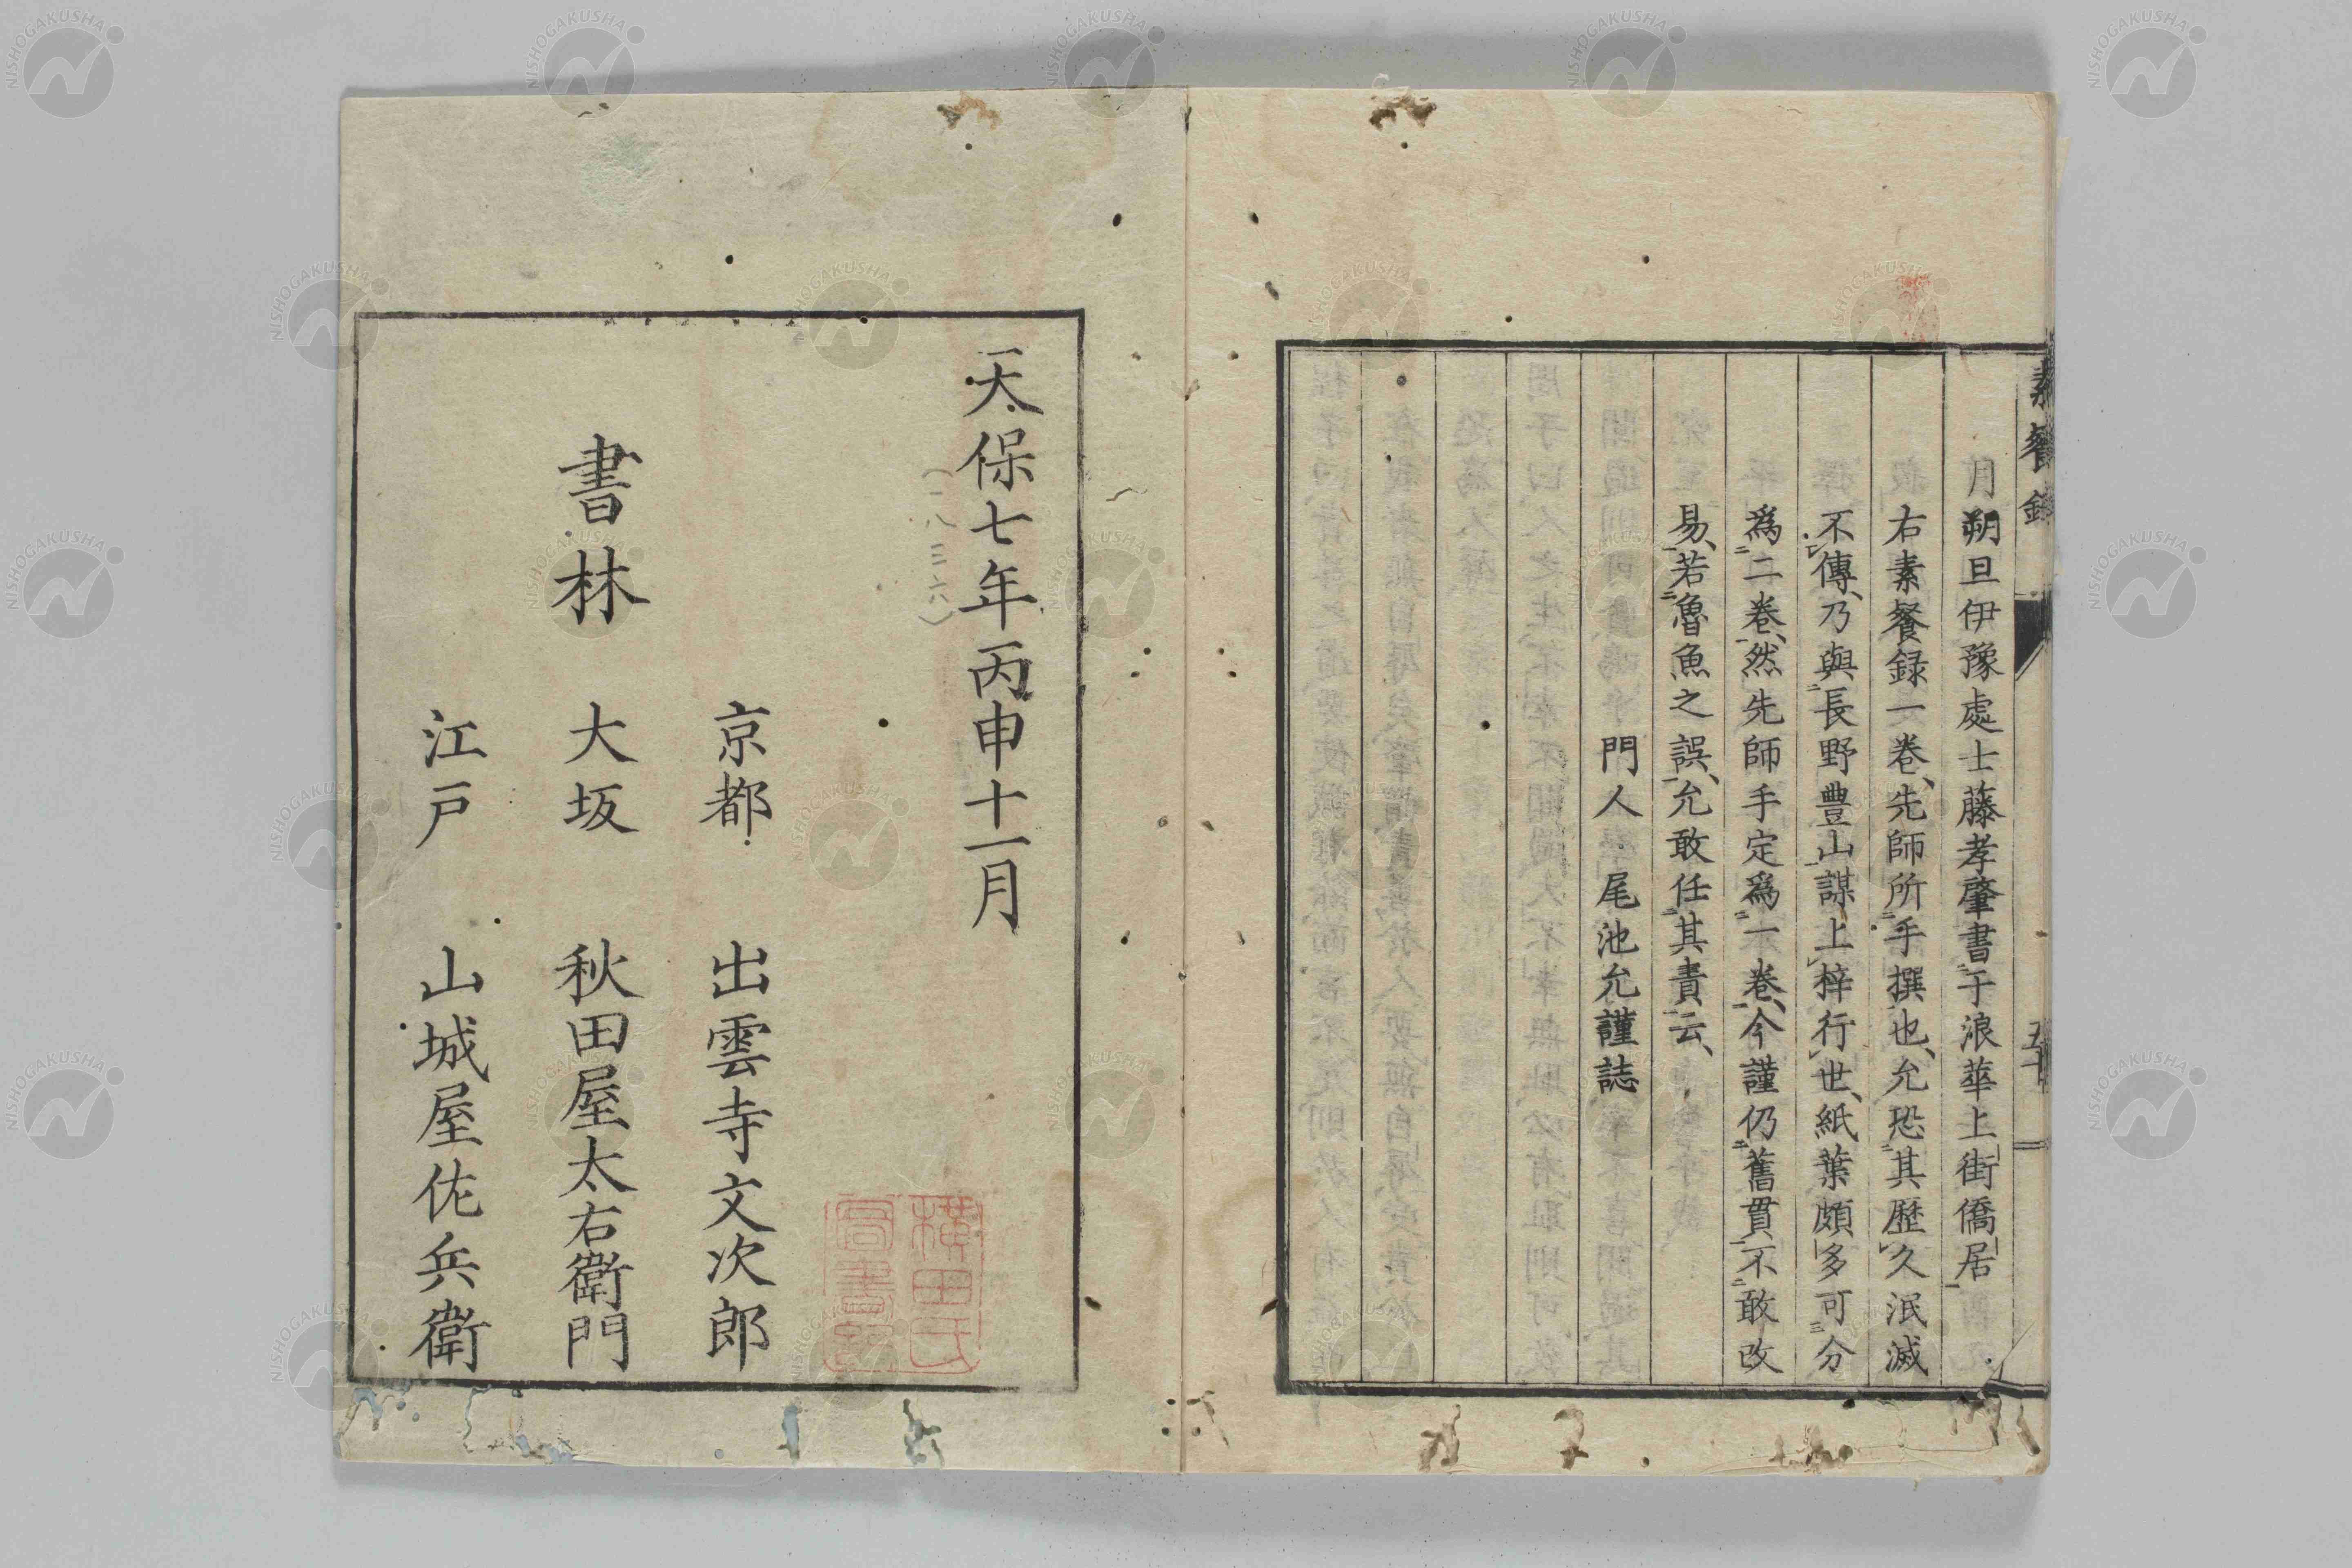 素餐録
月朔旦伊豫處士藤孝肇書于浪華上街僑居
右素餐録一卷、先師所手撰也、允恐其歴久泯滅
不傳、乃與長野豊山謀上梓行世、紙葉頗多可分
爲二卷、然先師手定爲一卷、今謹仍舊貫不敢改
易、若魯魚之誤、允敢任其責云、
門人 尾池允謹誌
五十
天保七年丙申十一月
(一八三六)
横田氏
圖書記
京都 出雲寺文次郎
書林 大坂 秋田屋太右衛門
江戸 山城屋佐兵衛
NISHOGAKUSHA